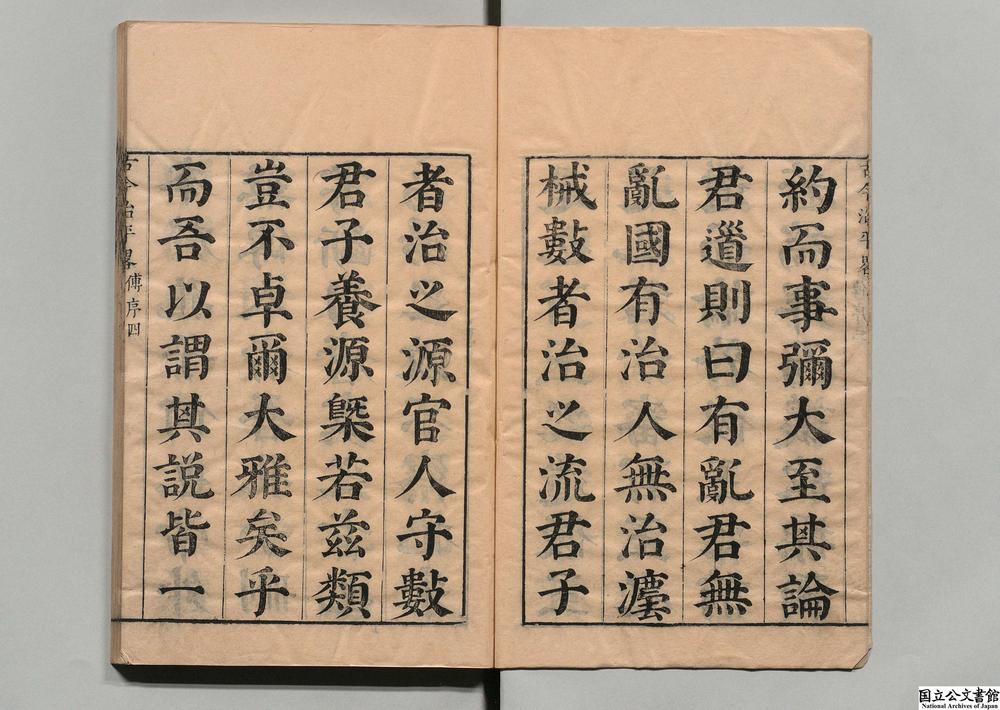 約而事彌大至其論
君道則曰有亂君無
亂國有治人無治灋
械數者治之流君子
者治之源官人守數
君子養源槩若茲類
豈不卓爾大雅矣乎
而吾以謂其説皆一
古今治平畧傅序四
国立公文書館
National Archives of Japan